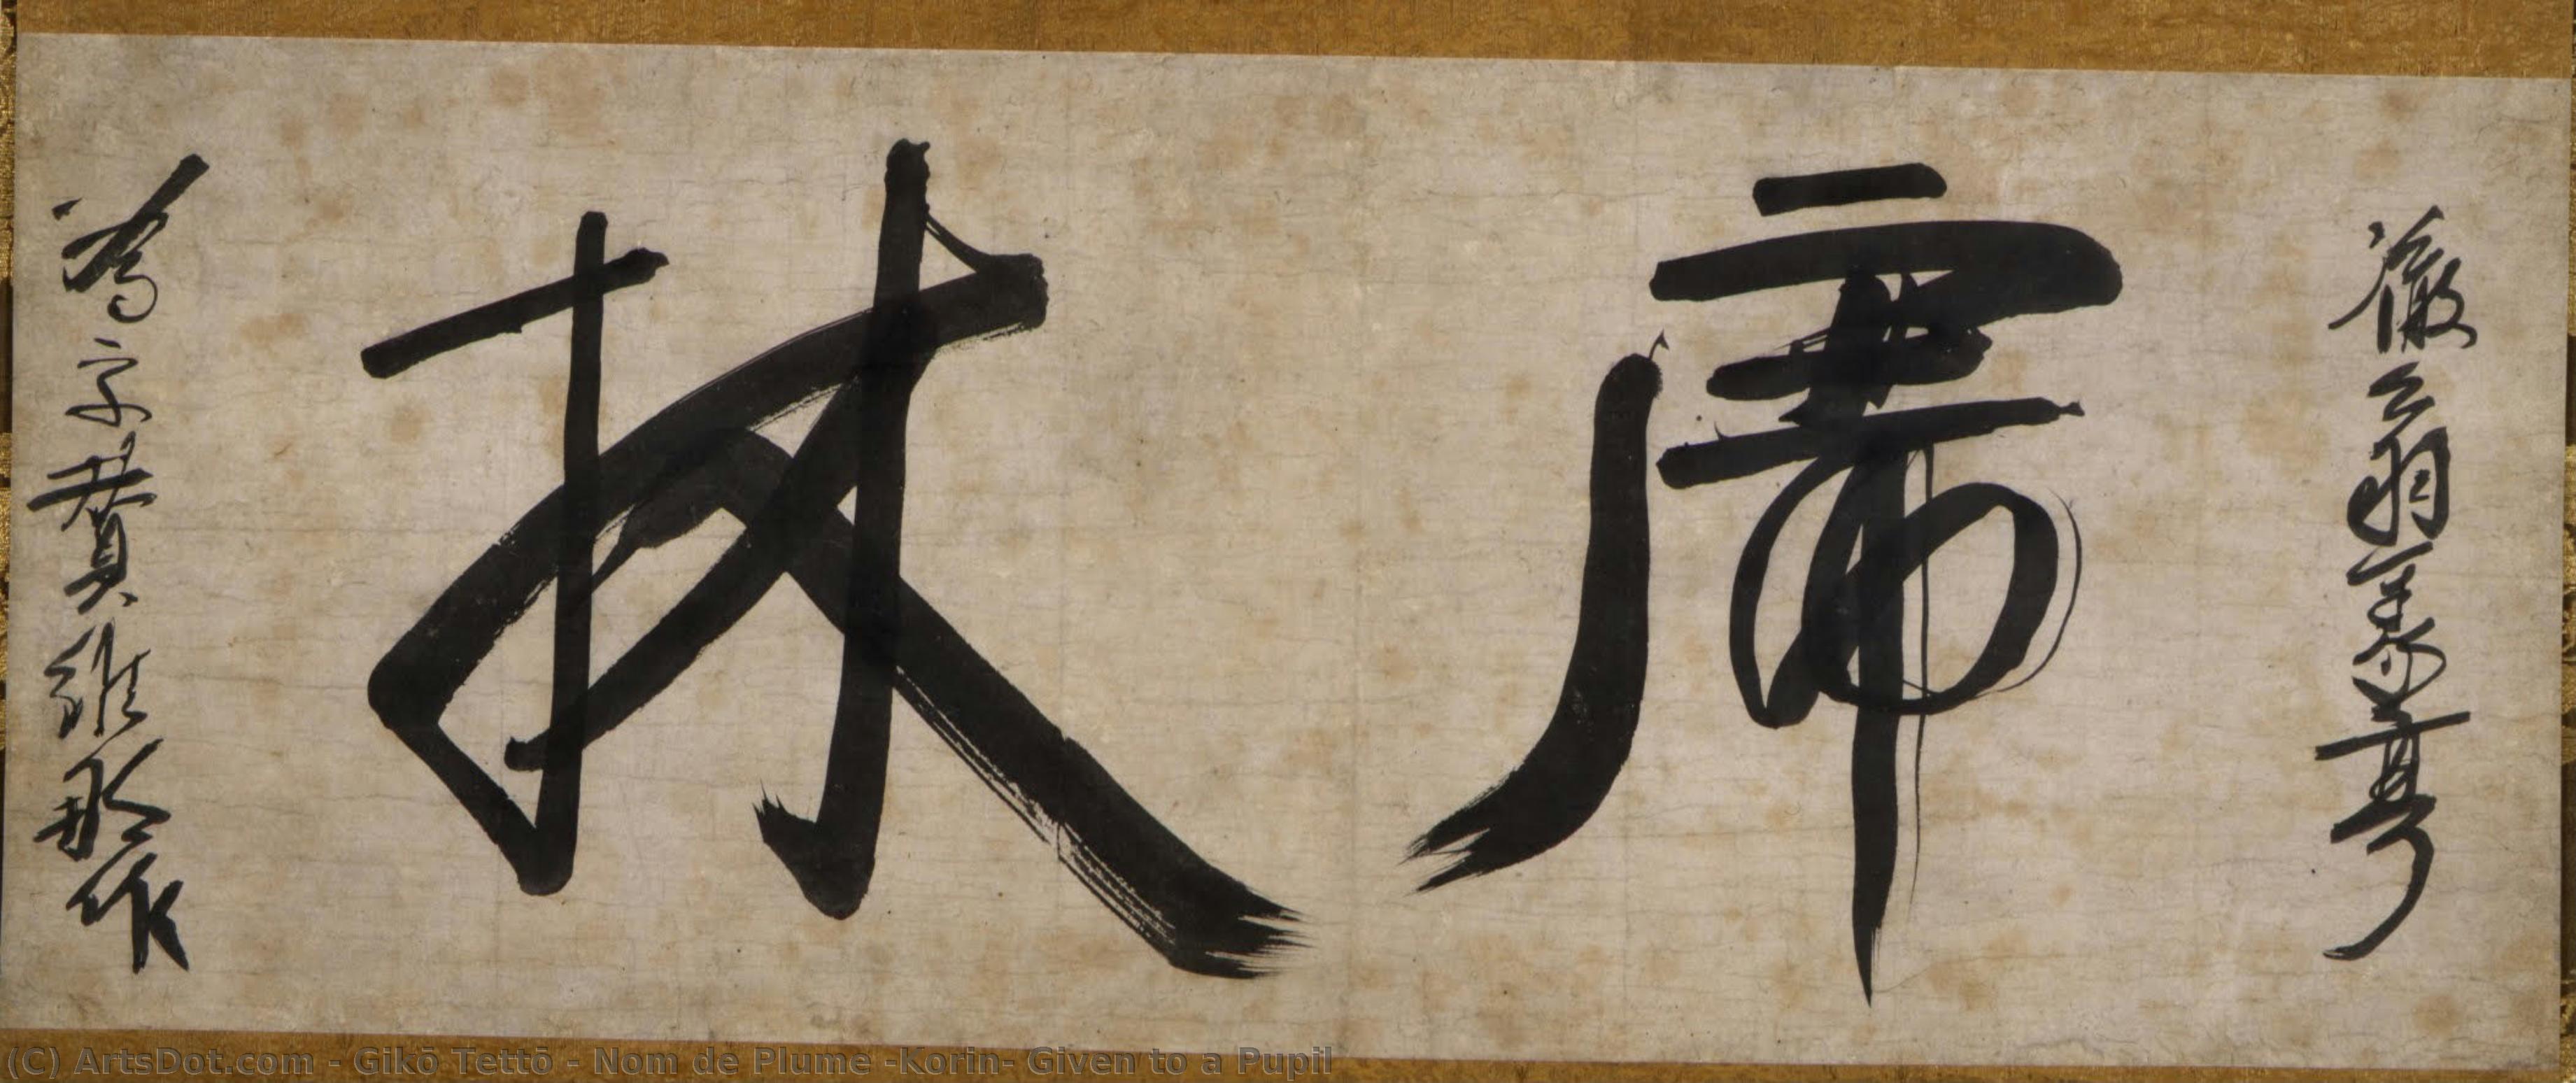 徹翁義亨
虎林
為宗賁維那作
(C) ArtsDot.com - Gikō Tettō - Nom de Plume -Korin- Given to a Pupil